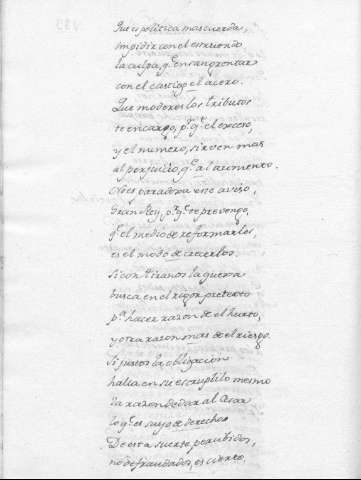 Que es politica mas cuerda,
impedir con el estruendo
la culpa, q.e ensangrentar
con el castigo el acero.
Que moderes los tributos
te encargo, p.r q.e el exceso,
y el numero, sirven mas
al perjuicio, q.e al aumento.
No es paradoxa este aviso,
Gran Rey, p.r q.e te prevengo,
q.e el medio de reformarlos,
es el modo de crecerlos.
Si con tiranos la guerra
busca en el rigor pretexto
p.a hacer razon de el hurto,
y otra razon mas de el riesgo.
Si justos la obligacion
halla en su escrupulo mesmo
la razon de dar al Cesar
lo q.e es suyo de derecho
De esta suerte percibidos,
no defraudados, es cierto